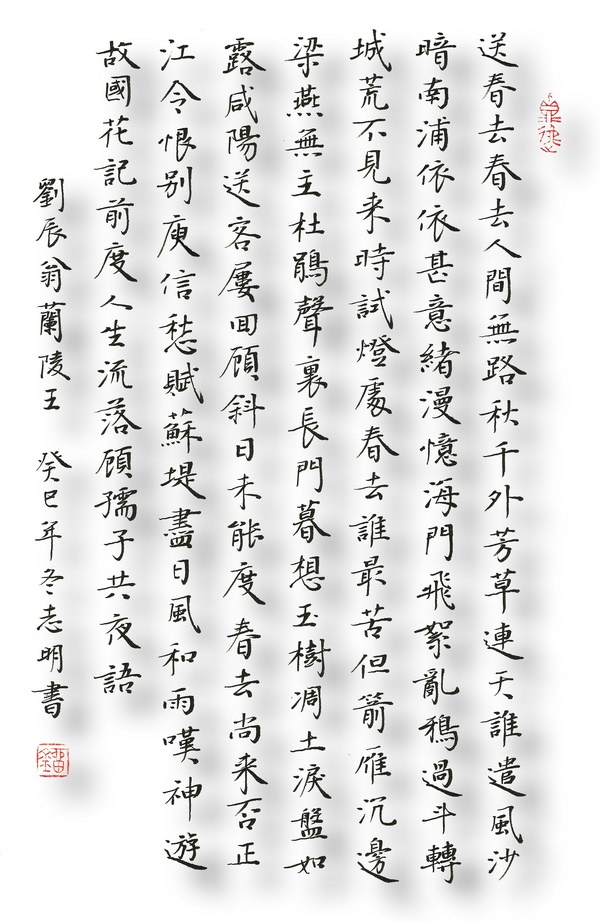 送春去春去人間無路秋千外芳草連天誰遣風沙
暗南浦依依甚意緒漫憶海門飛絮亂鴉過斗轉
城荒不見來時試燈處春去誰最苦但箭雁沉邊
梁燕無主杜鵑聲裏長門暮想玉樹凋土淚盤如
露咸陽送客屢回顧斜日未能度春去尚來否正
江令恨別庾信愁賦蘇堤盡日風和雨嘆神遊
故國花記前度人生流落顧孺子共夜語
劉辰翁蘭陵王 癸巳年冬志明書